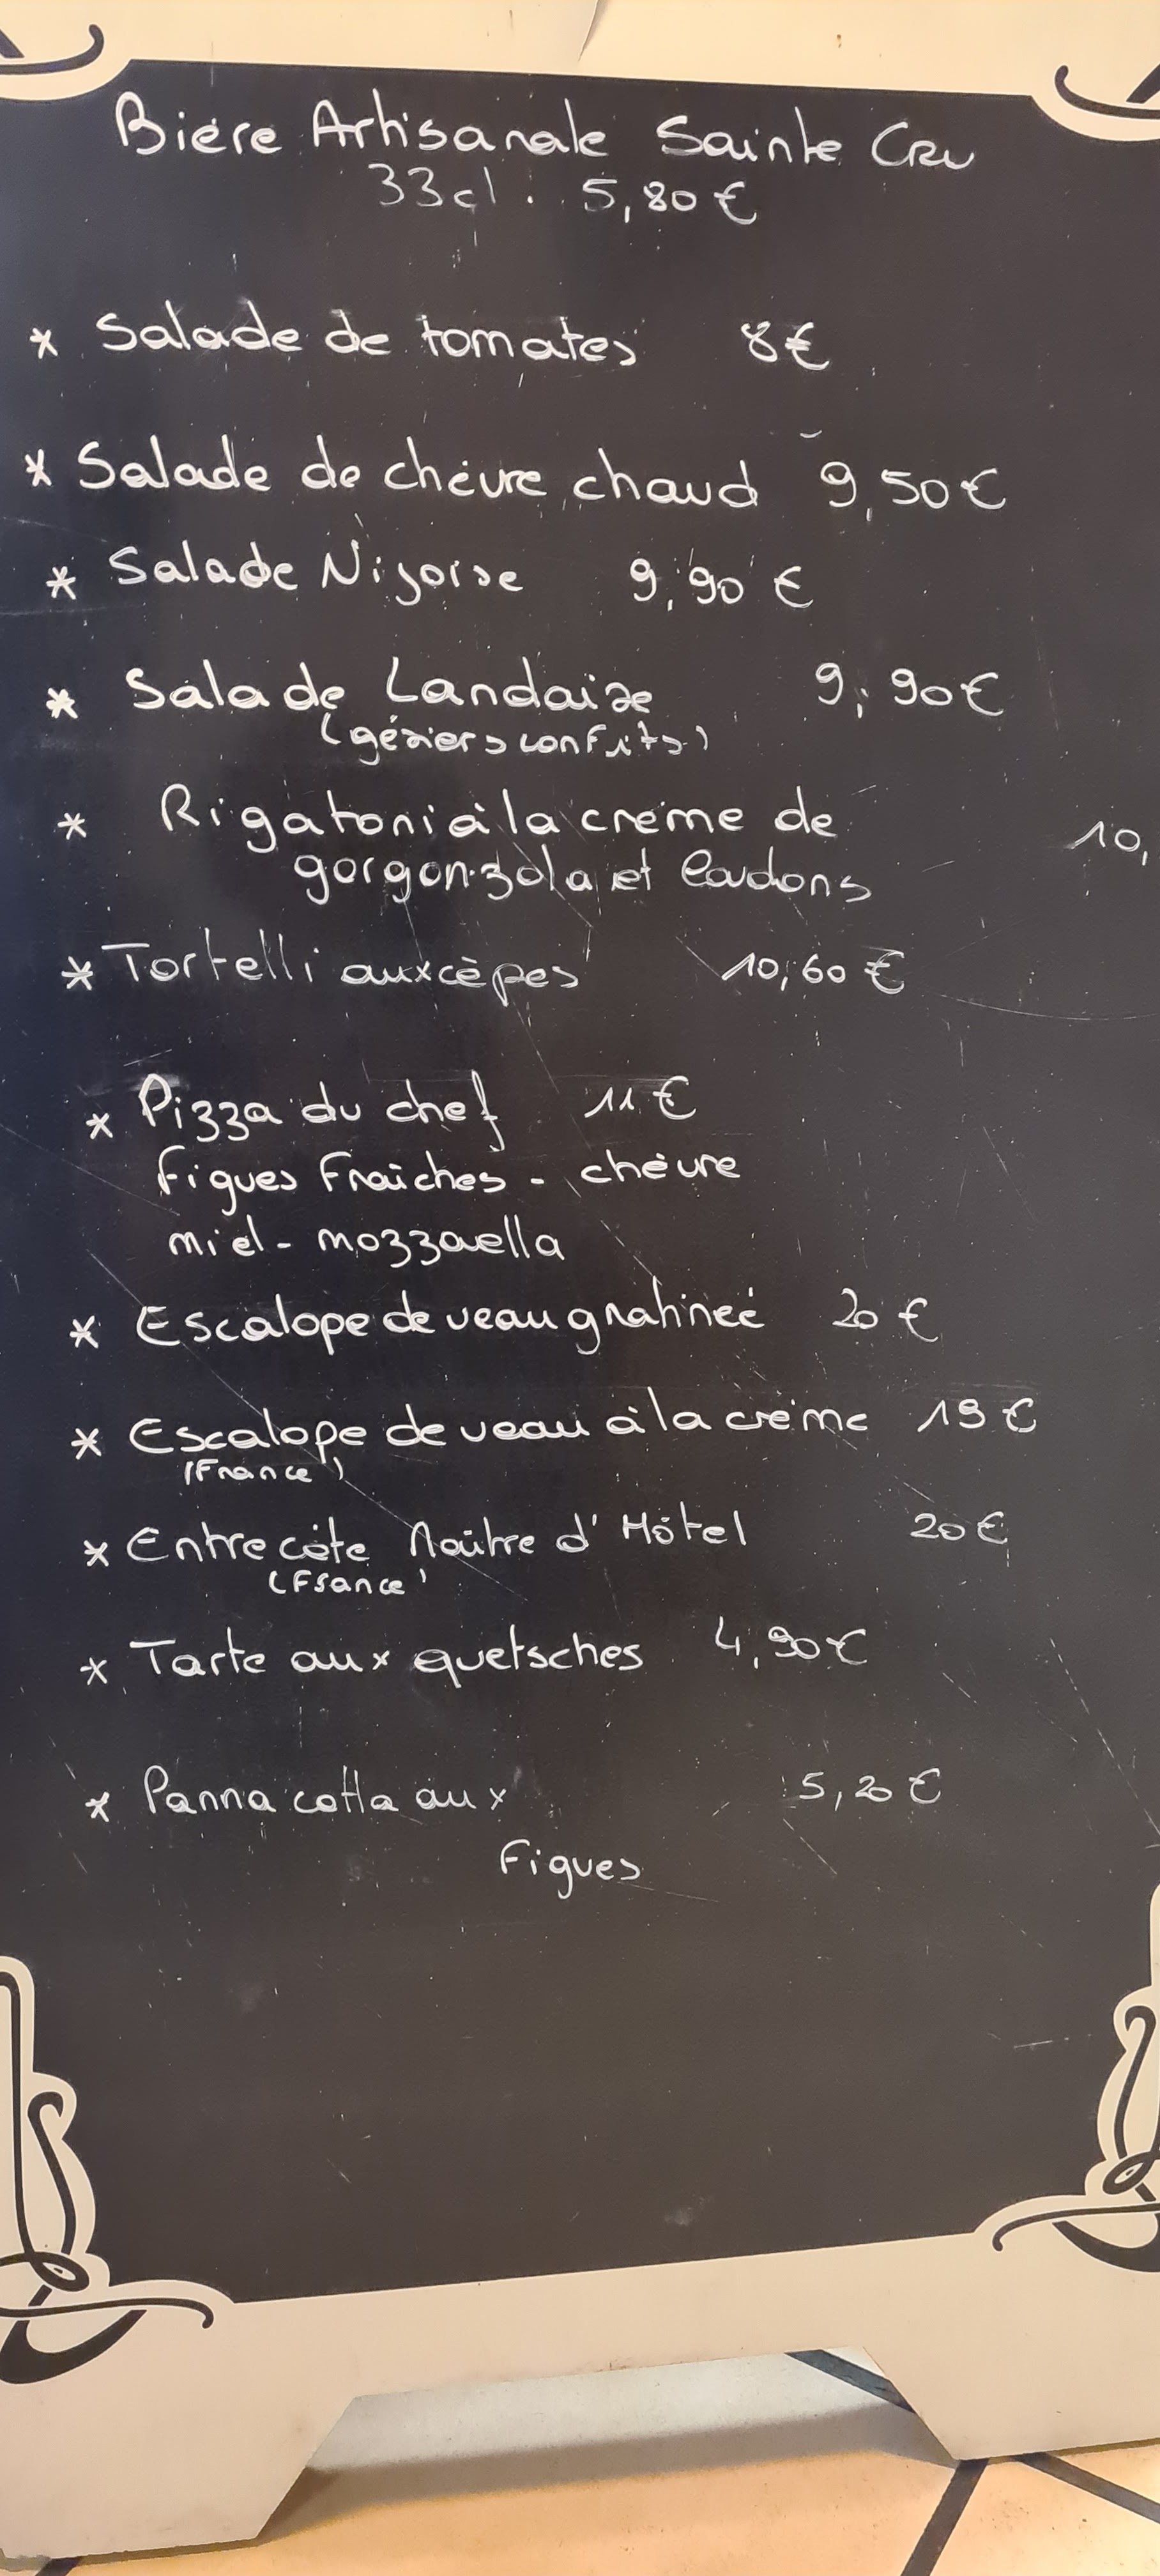 Bière Artisanale Sainte Cru
33cl. 5,80€
* Salade de tomates 8€
* Salade de chèvre chaud 9,50€
* Salade Niçoise 9,90 €
* Salade Landaise 9,90€
(gésiers confits)
* Rigatoni à la crème de 10,
gorgonzola et lardons
* Tortelli aux cèpes 10,60 €
* Pizza du chef 11 €
Figues Fraîches - chèvre
miel - mozzarella
* Escalope de veau gratineé 20 €
* Escalope de veau à la crème 19 €
(France)
* Entrecôte Maître d'Hôtel 20€
(France)
* Tarte aux quetsches 4,90€
* Panna cotta aux 5,20 €
Figues